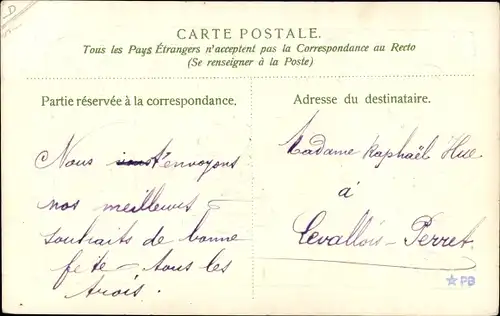 D
CARTE POSTALE.
Tous les Pays Étrangers n'acceptent pas la Correspondance au Recto
(Se renseigner à la Poste)
Partie réservée à la correspondance.
Nous t'envoyons
nos meilleurs
souhaits de bonne
fête - tous les
trois.
Adresse du destinataire.
Madame Raphaël Hue
à
Levallois-Perret
PB